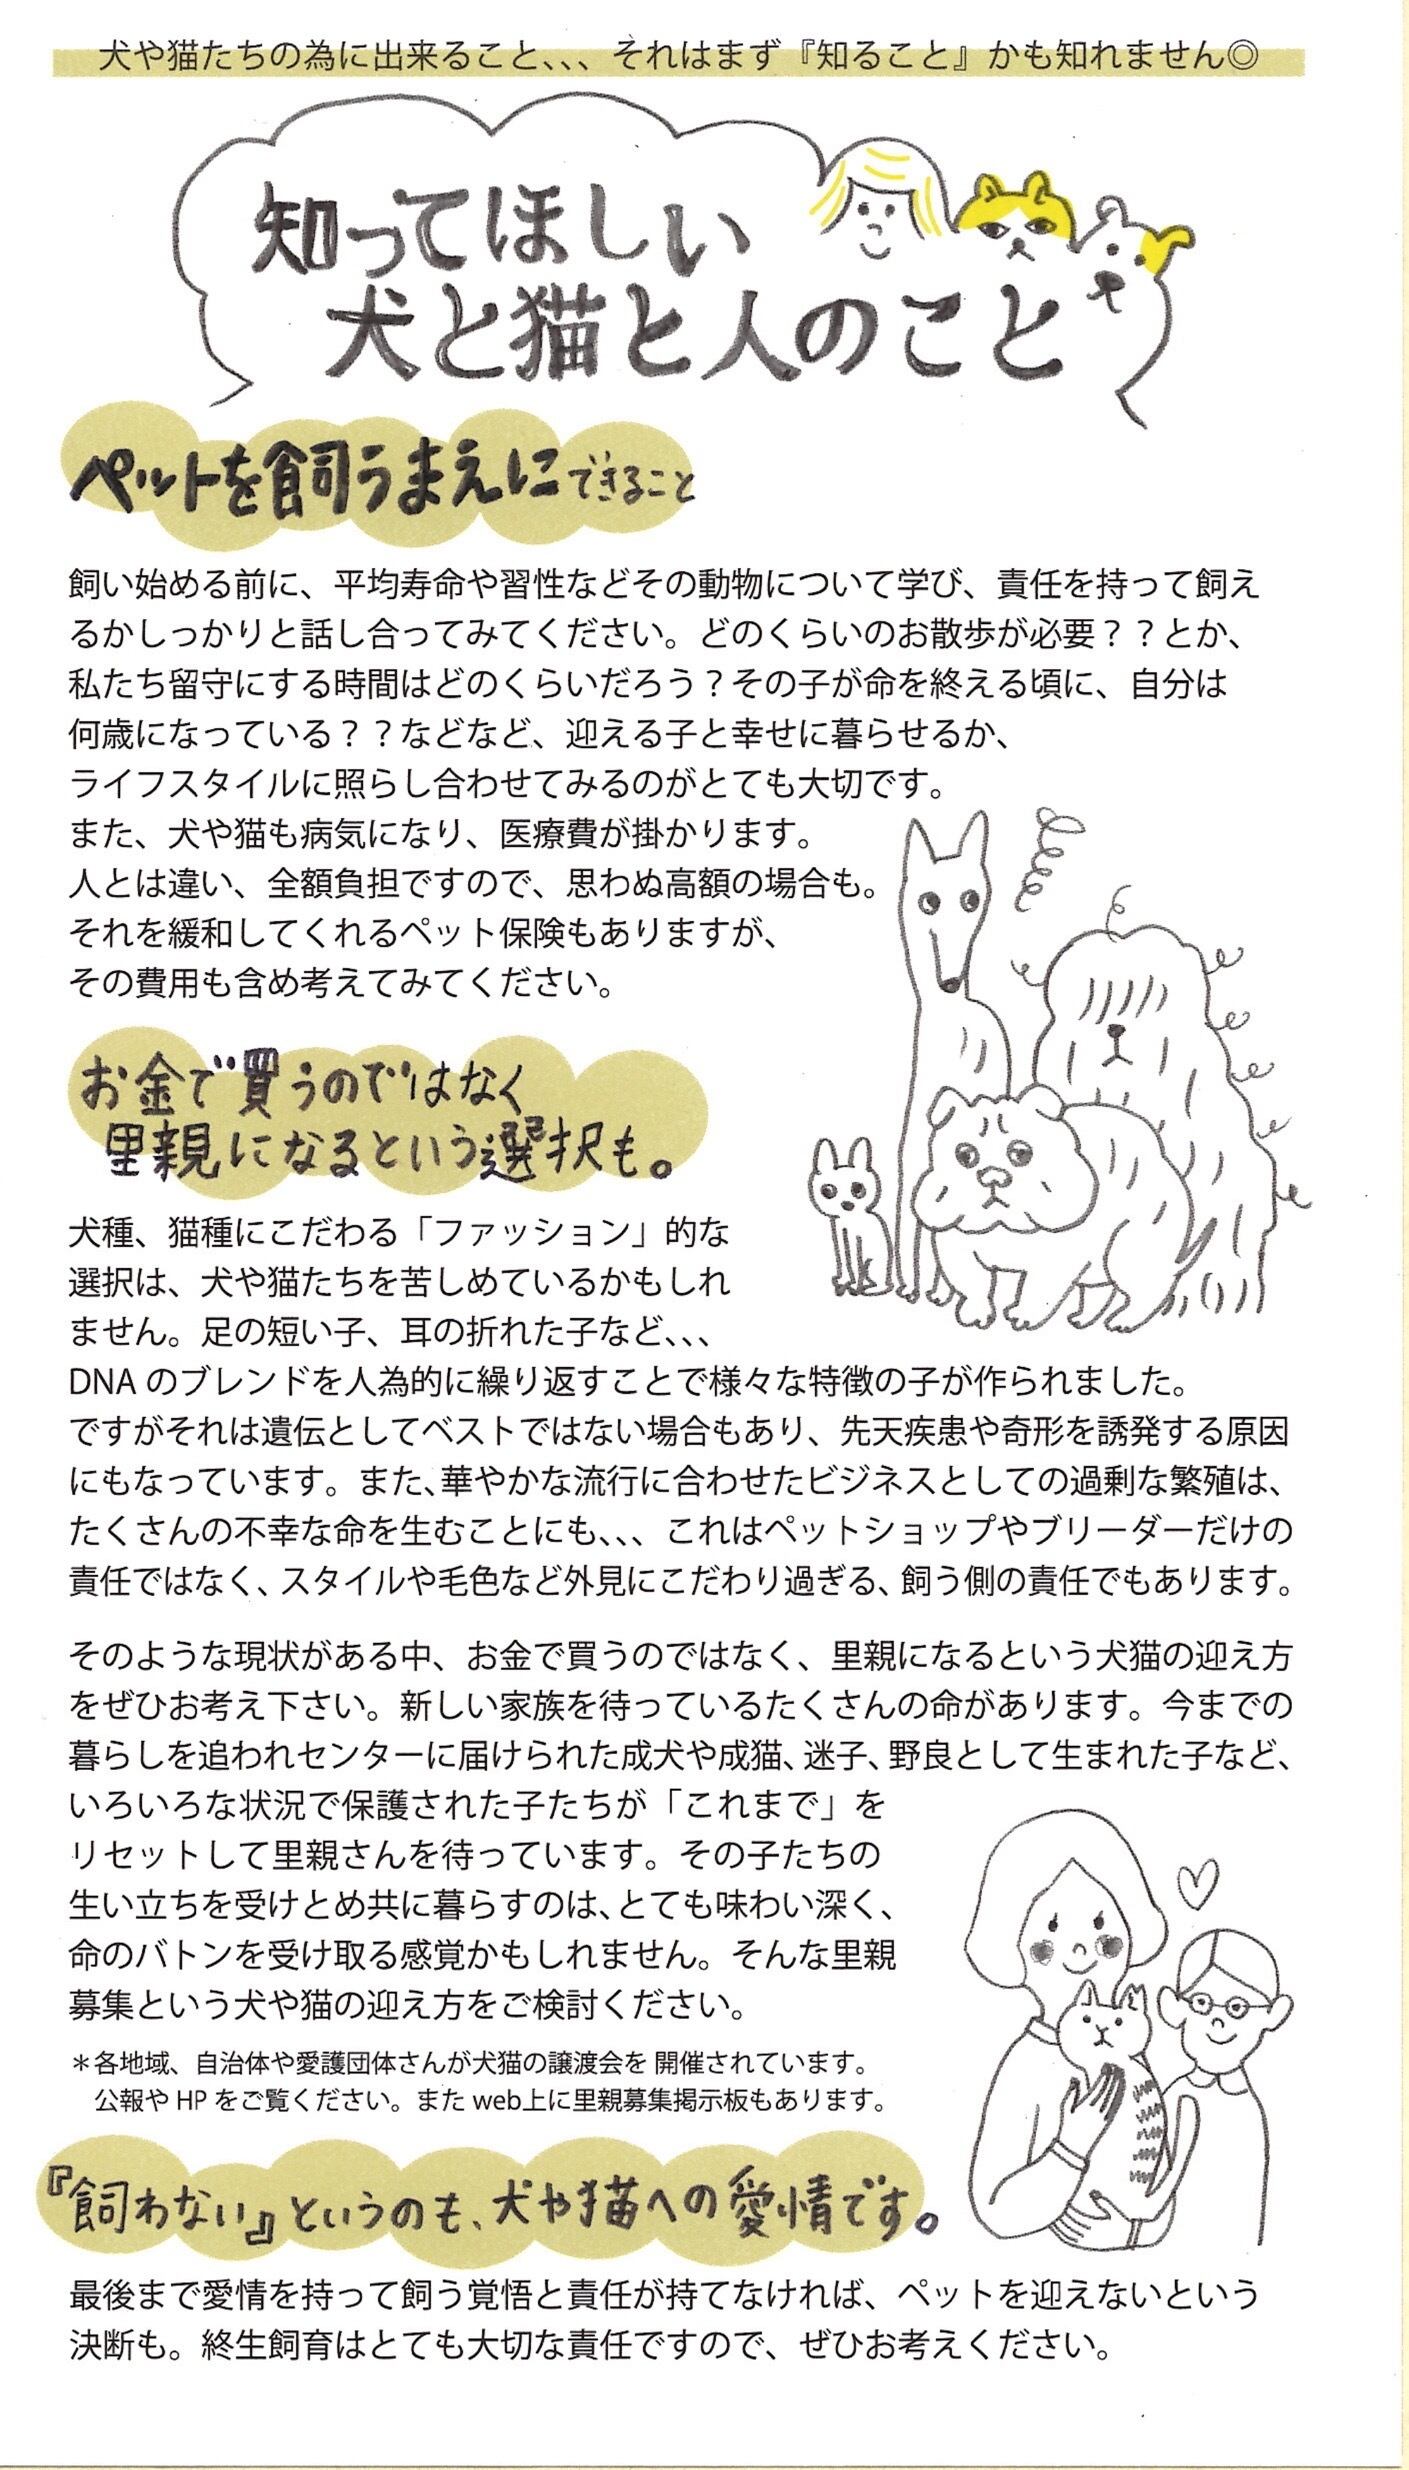 犬や猫たちの為に出来ること、、、それはまず『知ること』かも知れません◎
知ってほしい
犬と猫と人のこと
ペットを飼うまえにできること
飼い始める前に、平均寿命や習性などその動物について学び、責任を持って飼え
るかしっかりと話し合ってみてください。どのくらいのお散歩が必要？？とか、
私たち留守にする時間はどのくらいだろう？その子が命を終える頃に、自分は
何歳になっている？？などなど、迎える子と幸せに暮らせるか、
ライフスタイルに照らし合わせてみるのがとても大切です。
また、犬や猫も病気になり、医療費が掛かります。
人とは違い、全額負担ですので、思わぬ高額の場合も。
それを緩和してくれるペット保険もありますが、
その費用も含め考えてみてください。
お金で買うのではなく
里親になるという選択も。
犬種、猫種にこだわる「ファッション」的な
選択は、犬や猫たちを苦しめているかもしれ
ません。足の短い子、耳の折れた子など、、、
DNAのブレンドを人為的に繰り返すことで様々な特徴の子が作られました。
ですがそれは遺伝としてベストではない場合もあり、先天疾患や奇形を誘発する原因
にもなっています。また、華やかな流行に合わせたビジネスとしての過剰な繁殖は、
たくさんの不幸な命を生むことにも、、、これはペットショップやブリーダーだけの
責任ではなく、スタイルや毛色など外見にこだわり過ぎる、飼う側の責任でもあります。
そのような現状がある中、お金で買うのではなく、里親になるという犬猫の迎え方
をぜひお考え下さい。新しい家族を待っているたくさんの命があります。今までの
暮らしを追われセンターに届けられた成犬や成猫、迷子、野良として生まれた子など、
いろいろな状況で保護された子たちが「これまで」を
リセットして里親さんを待っています。その子たちの
生い立ちを受けとめ共に暮らすのは、とても味わい深く、
命のバトンを受け取る感覚かもしれません。そんな里親
募集という犬や猫の迎え方をご検討ください。
＊各地域、自治体や愛護団体さんが犬猫の譲渡会を 開催されています。
公報や HP をご覧ください。また web上に里親募集掲示板もあります。
『飼わない』というのも、犬や猫への愛情です。
最後まで愛情を持って飼う覚悟と責任が持てなければ、ペットを迎えないという
決断も。終生飼育はとても大切な責任ですので、ぜひお考えください。